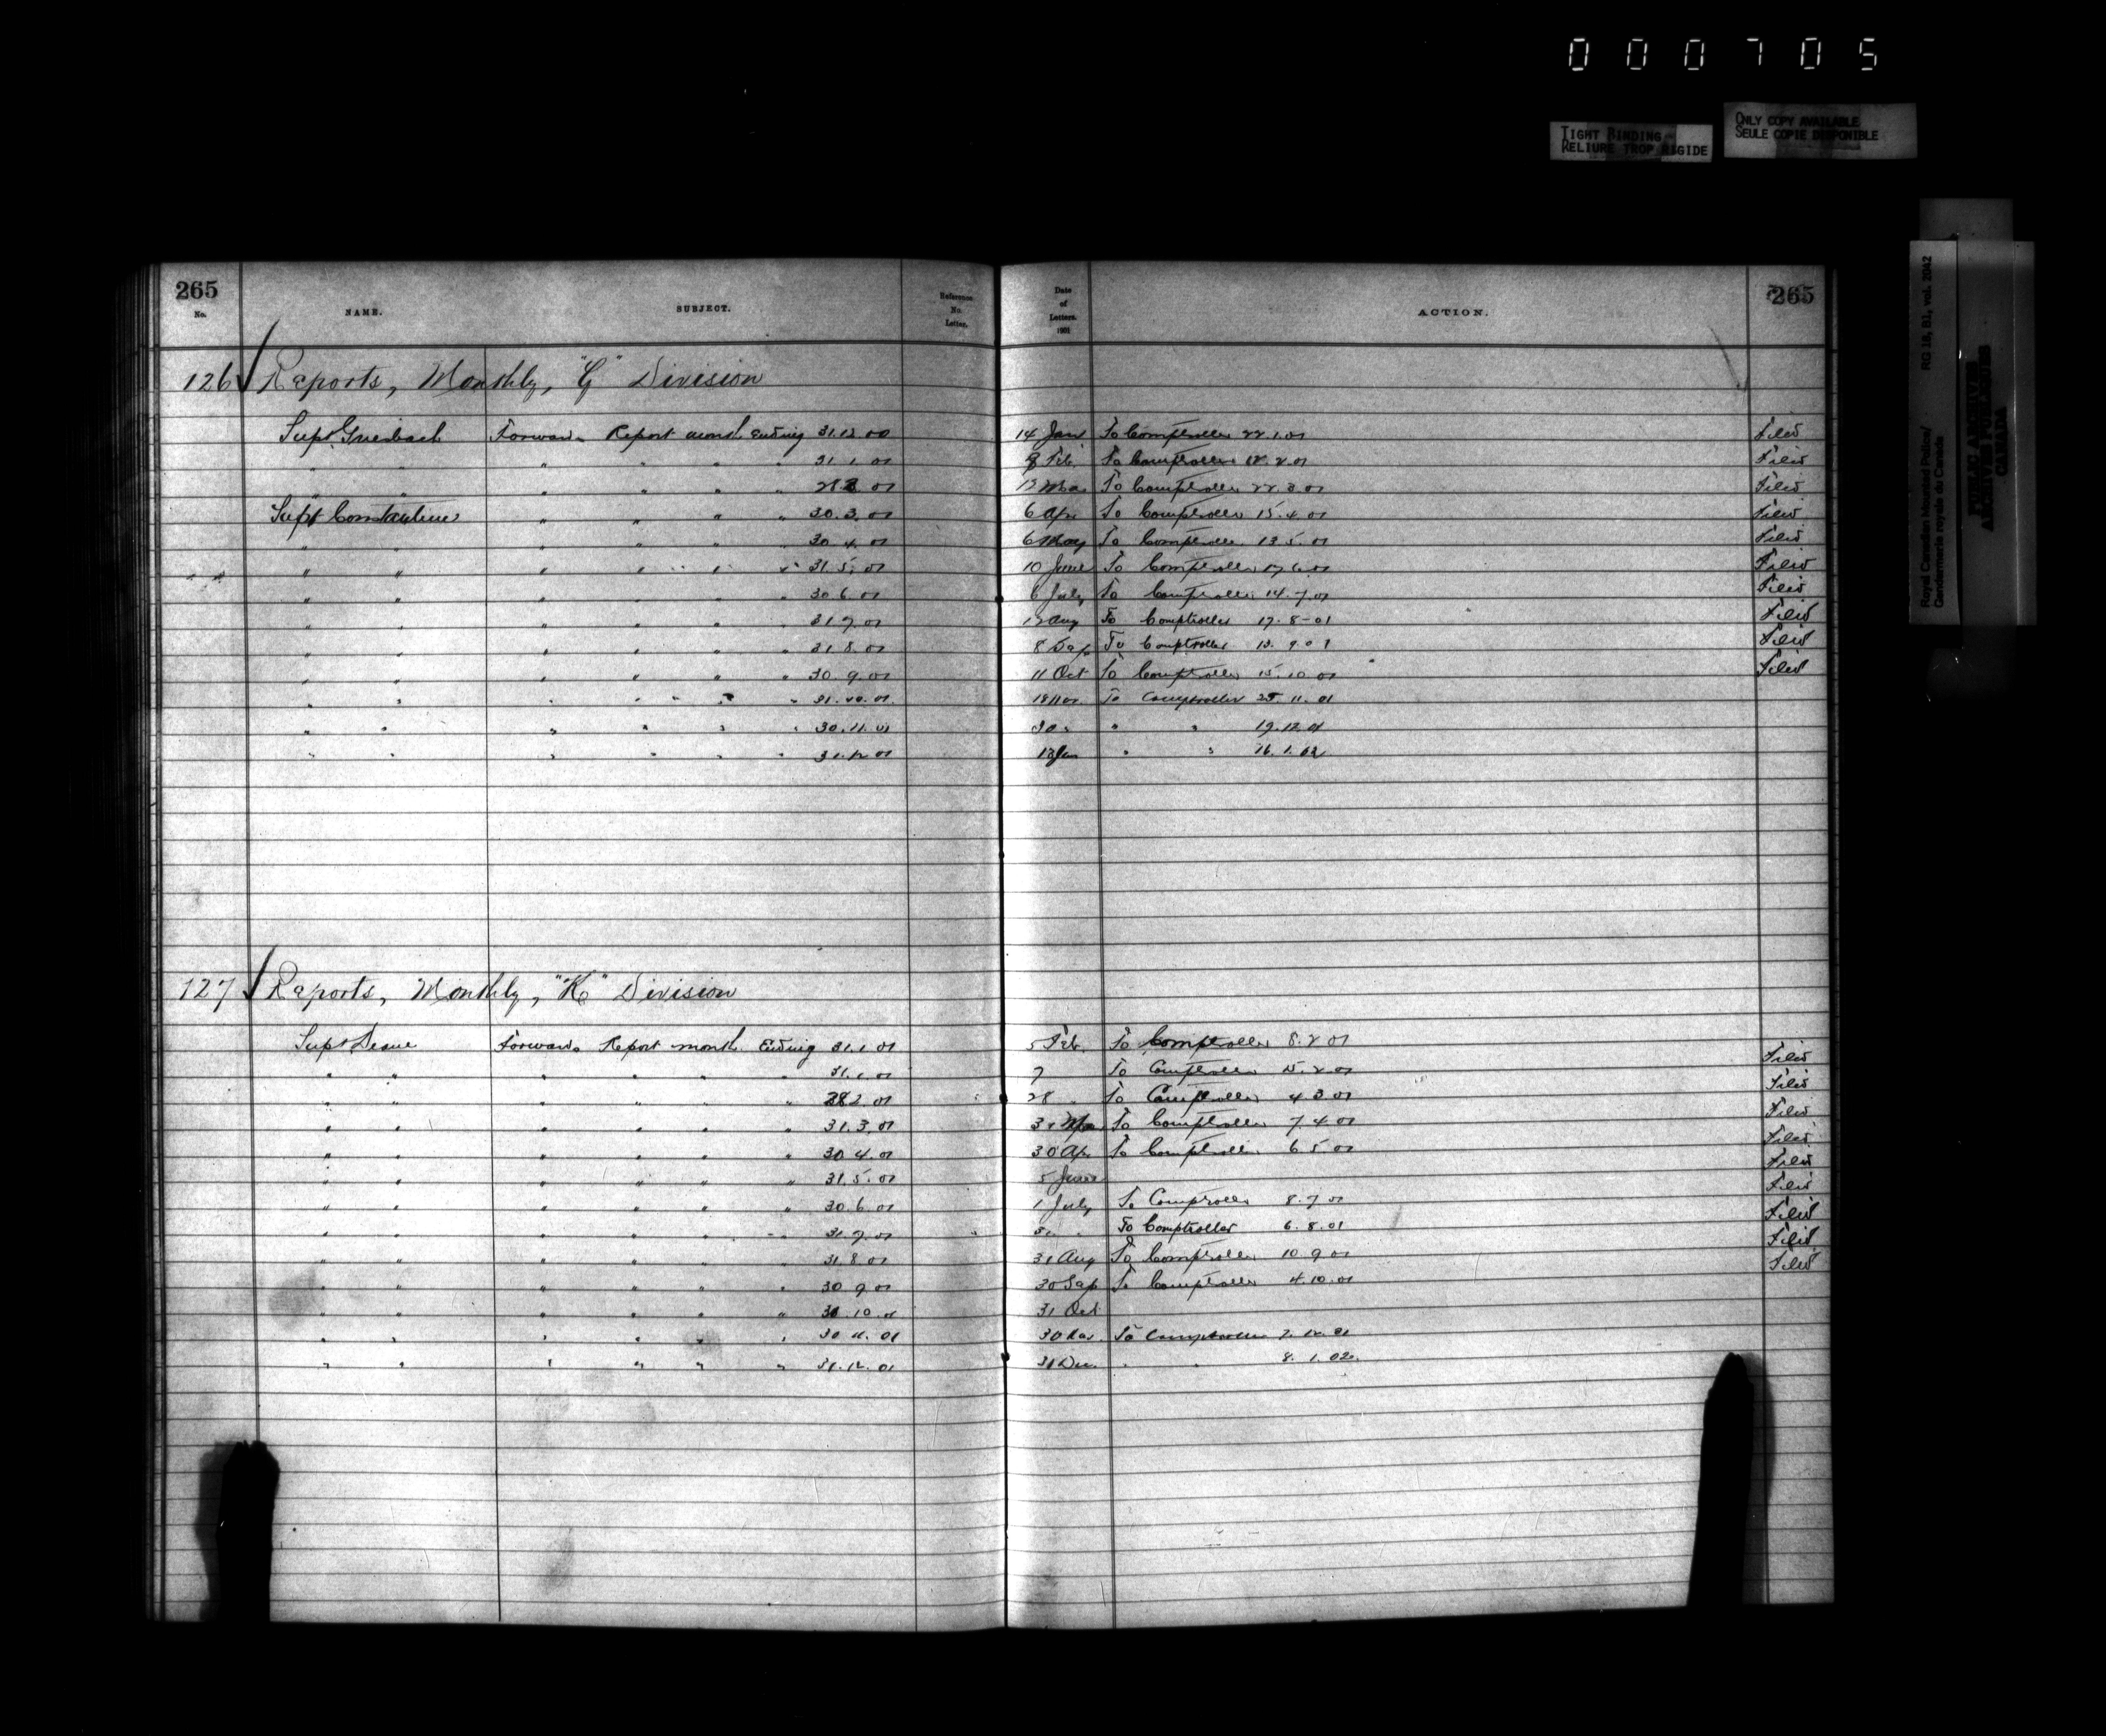 000705
TIGHT BINDING
RELIURE TROP RIGIDE
ONLY COPY AVAILABLE
SEULE COPIE DISPONIBLE
Royal Canadian Mounted Police/ RG 18, B1, vol. 2042
Gendarmerie royale du Canada
PUBLIC ARCHIVES
ARCHIVES PUBLIQUES
CANADA
265 265
No. NAME. SUBJECT. Reference No. Letter. Date of Letters. 1901 ACTION.
126 Reports, Monthly, "G" Division
Supt Griesbach Forwards Report month Ending 31.12.00 14 Jan To Comptroller 22.1.01 Filed
" " " " " " 31.1.01 8 Feb To Comptroller 18.2.01 Filed
" " " " " " 28.2.01 12 Mar To Comptroller 22.3.01 Filed
Supt Constantine " " " " 30.3.01 6 Apr To Comptroller 15.4.01 Filed
" " " " " " 30.4.01 6 May To Comptroller 13.5.01 Filed
" " " " " " 31.5.01 10 June To Comptroller 17.6.01 Filed
" " " " " " 30.6.01 6 July To Comptroller 14.7.01 Filed
" " " " " " 31.7.01 12 Aug To Comptroller 17.8-01 Filed
" " " " " " 31.8.01 8 Sep To Comptroller 9.01 Filed
" " " " " " 30.9.01 11 Oct To Comptroller 15.10.01 Filed
" " " " " " 31.10.01 18 Nov To Comptroller 25.11.01
" " " " " " 30.11.01 " " 19.12.01
" " " " " " 31.12.01 13 Jan " " 16.1.02
127 Reports, Monthly, "K" Division
Supt Deane Forwards Report month Ending 31.1.01 5 Feb To Comptroller 8.2.01 Filed
" " " " " " 31.1.01 7 To Comptroller 15.2.01 Filed
" " " " " " 28.2.01 28 " To Comptroller 4.3.01 Filed
" " " " " " 31.3.01 31 Mar To Comptroller 7.4.01 Filed
" " " " " " 30.4.01 30 Apr To Comptroller 6.5.01 Filed
" " " " " " 31.5.01 5 June Filed
" " " " " " 30.6.01 1 July To Comptroller 8.7.01 Filed
" " " " " " 31.7.01 31 " To Comptroller 6.8.01 Filed
" " " " " " 31.8.01 31 Aug To Comptroller 10.9.01 Filed
" " " " " " 30.9.01 30 Sep To Comptroller 4.10.01
" " " " " " 31.10.01 31 Oct
" " " " " " 30.11.01 30 Nov To Comptroller 7.12.01
" " " " " " 31.12.01 31 Dec " " 8.1.02